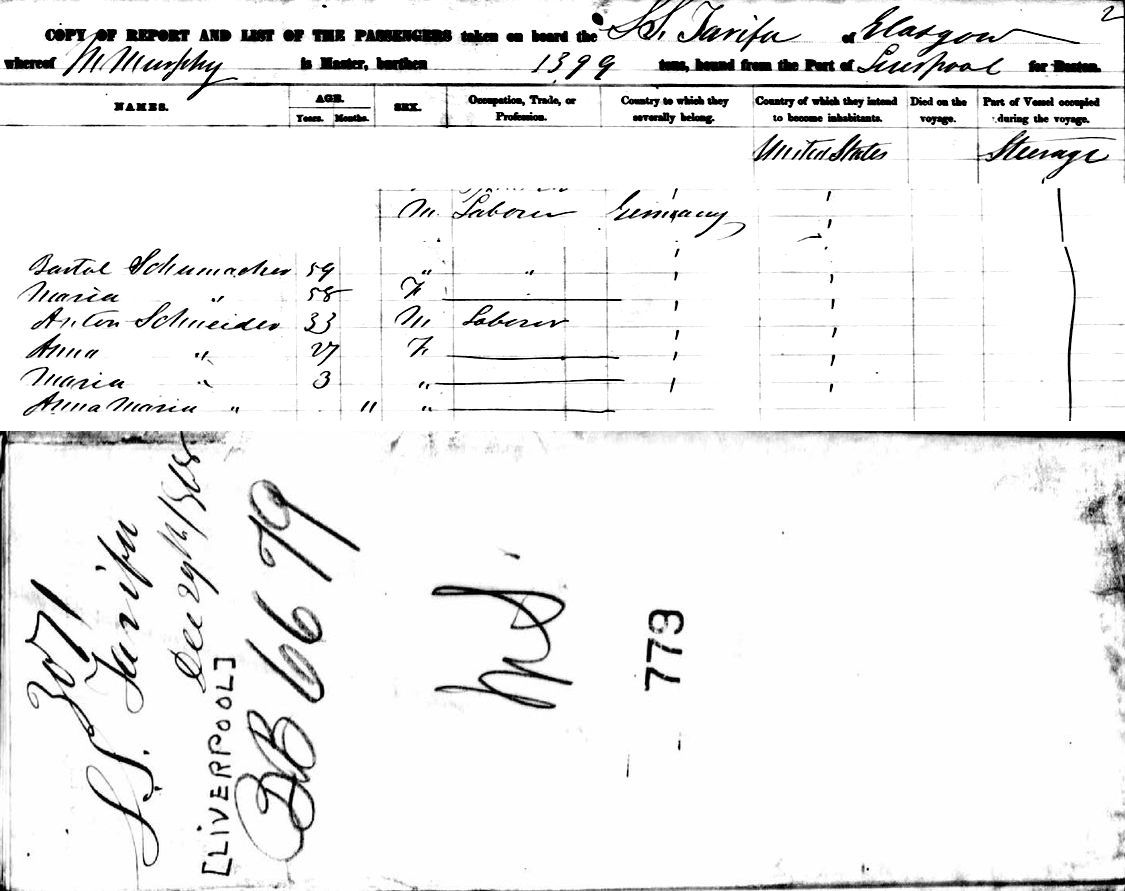 2
COPY OF REPORT AND LIST OF THE PASSENGERS taken on board the S.S. Tarifa of Glasgow
whereof M. Murphy is Master, burthen 1399 tons, bound from the Port of Liverpool for Boston.
NAMES. AGE. Years. Months. SEX. Occupation, Trade, or Profession. Country to which they severally belong. Country of which they intend to become inhabitants. Died on the voyage. Part of Vessel occupied during the voyage.
United States Steerage
M. Laborer Germany
Bartol Schumacher 59 " "
Maria " 58 F
Anton Schneider 33 M Laborer
Anna " 27 F
Maria " 3 "
Anna Maria " 11 "
3071
S.S. Tarifa
Dec 29th/868
[LIVERPOOL]
BB 6679
773